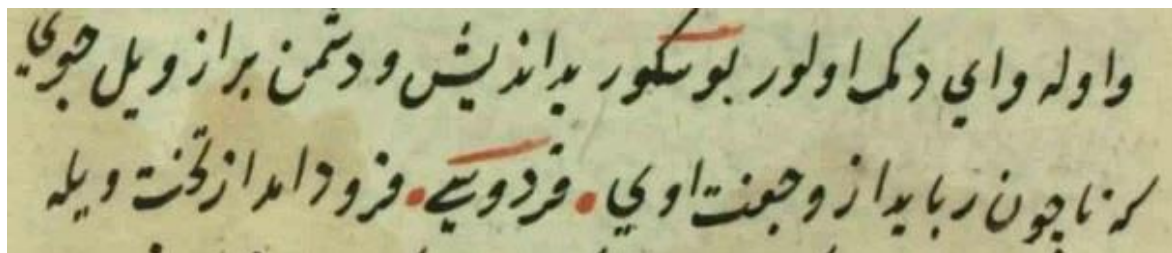 واوله وای دمک اولور بوسکور بداندیش و دشمن براز ویل جوی
که تا چون رباید از وجفت اوی • فردوسی • فرود امد از تخت ویله